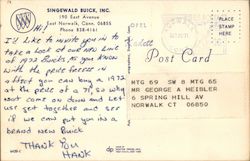 SINGEWALD BUICK, INC.
190 East Avenue
East Norwalk, Conn. 06855
Phone 838-4161
Hi,
I'D LIKE TO INVITE YOU IN TO
TAKE A LOOK AT OUR NEW LINE
OF 1972 BUICKS. AS YOU KNOW
WITH THE PRICE FREEZE IN
EFFECT YOU CAN BUY A 1972
AT THE PRICE OF A 71, SO WHY
NOT COME ON DOWN AND LET
US GET TOGETHER AND SEE
IF WE CAN PUT YOU IN A
BRAND NEW BUICK
THANK YOU
HANK
Post Card
MTG 69 SW 8 MTG 65
MR GEORGE A HEIBLER
6 SPRING HILL AV
NORWALK CT 06850